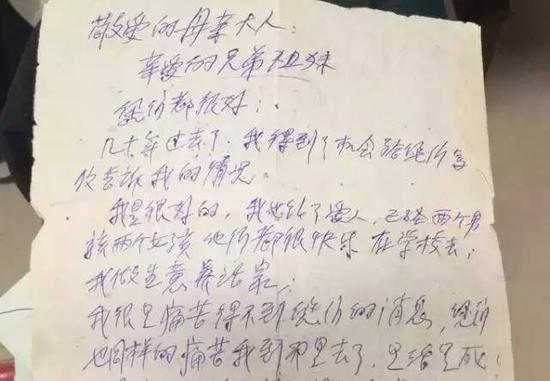 敬爱的母亲大人:
亲爱的兄弟姐妹
您们都很好;
几十年过去了,我得到了机会给您们写
信告诉我的情况
我是很好的,我也结了爱人,已 两个男
孩两个女孩 他们都很快乐 在学校去;
我做生意养活家;
我很是痛苦得不到您们的消息,您们
也同样的痛苦我到那里去了,是活是死;